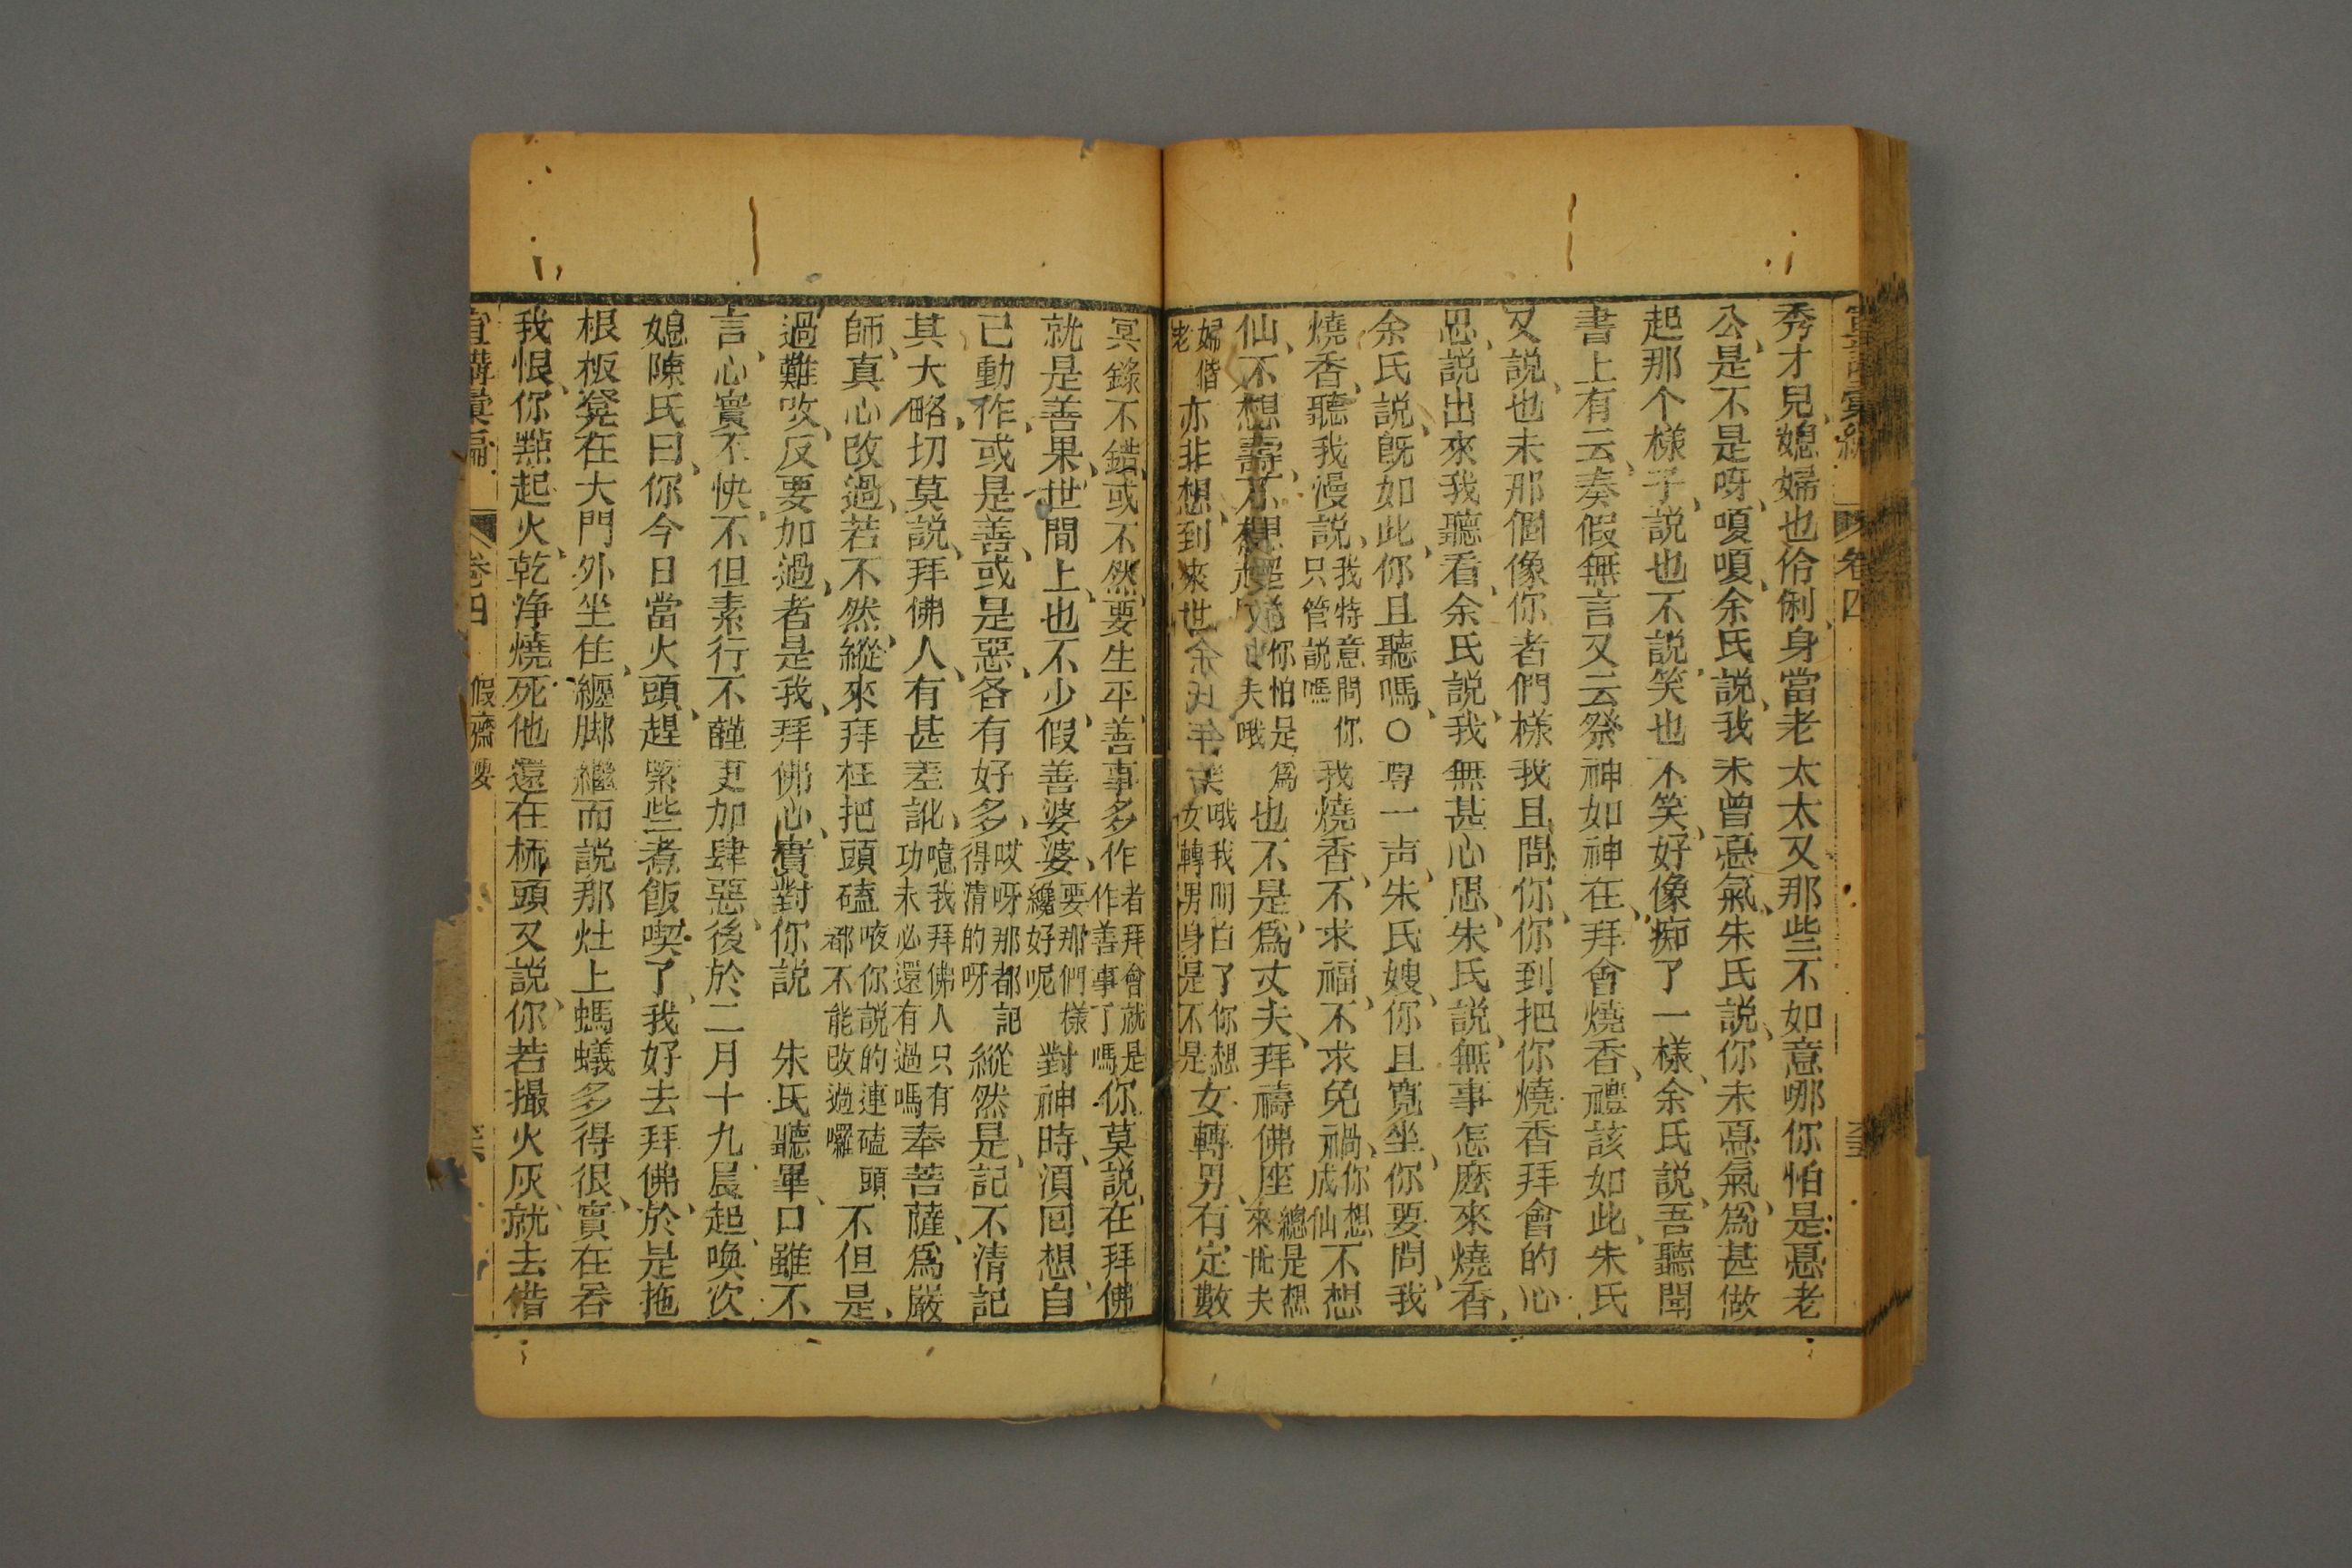 宣講彙編 卷四
秀才兒、媳婦也伶俐、身當老太太又那些不如意哪你怕是慪老
公、是不是呀、嗄嗄、余氏說、我未曾慪氣、朱氏說、你未慪氣、爲甚做
起那个樣子、說也不說、笑也不笑、好像痴了一樣、余氏說、吾聽聞
書上有云、奏假無言又云祭神如神在、拜會燒香、禮該如此、朱氏
又說、也未那個像你者們樣我且問你、你到把你燒香拜會的心
思、說出來我聽看、余氏說、我無甚心思、朱氏說、無事怎麽來燒香、
余氏說、旣如此、你且聽嗎、〇尊一声、朱氏嫂、你且寬坐、你要問、我
燒香、聽我漫說、我特意問你只管說嗎我燒香、不求福、不求免禍、你想成仙不想
仙、不想壽、你怕是爲夫哦也不是、爲丈夫、拜禱佛座總是想來世夫
婦偕老亦非想、到來世哦我明白了你想女轉男身是不是女轉男、有定數
冥錄不錯、或不然、要生平、善事多作者拜會就是作善事了嗎你莫說、在拜佛
就是善果、世間上、也不少、假善婆婆、要那們樣纔好呢對神時、須回想、自
己動作、或是善、或是惡、各有好多、哎呀那都記得清的呀縱然是、記不清記
其大略、切莫說、拜佛人、有甚差訛、噫我拜佛人只有功未必還有過嗎奉菩薩、爲嚴
師、真心改過、若不然、縱來拜枉把頭磕哦你說的連磕頭都不能改過囉不但是、
過難改、反要加過、者是我、拜佛心、實對你說　朱氏聽畢、口雖不
言、心實不快、不但素行不謹更加肆惡、後於二月十九晨起、喚次
媳陳氏曰、你今日當火頭、趕緊些煮飯喫了、我好去拜佛、於是拖
根板凳在大門外坐住、纏脚、繼而說那灶上螞蟻多得很、實在吞
我恨、你點起火、乾淨燒死他還在柄頭又說、你若撮火灰、就去借
宣講彙編 卷四 假齋婆